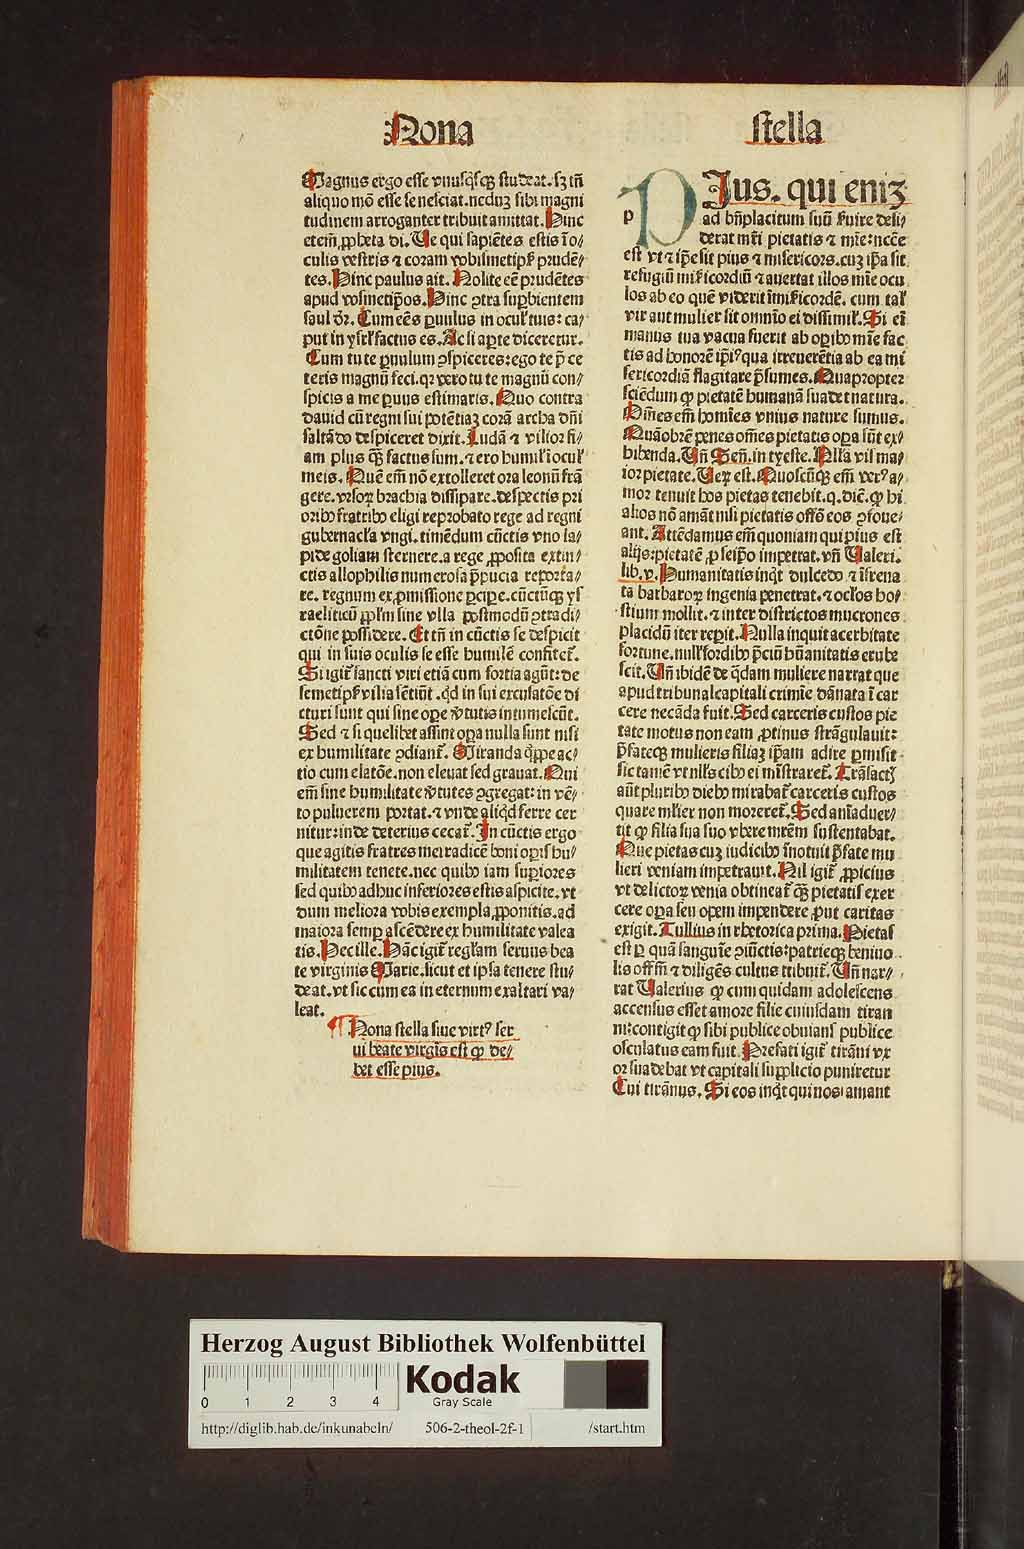 Nona stella
Magnus ergo esse vnusq̃sqꝫ studeat. sꝫ tñ
aliquo mõ esse se nesciat. ne duꝫ sibi magni
tudinem arroganter tribuit amittat. Hinc
etem̃ ꝓpheta di. Ve qui sapiẽtes estis ĩ o⸗
culis vestris ⁊ coram vobismetipẜ prudẽ⸗
tes. Hinc paulus ait. Nolite eẽ prudẽtes
apud vosmetip̃os. Hinc ꝯtra suꝑbientem
saul dr̃. Cum eẽs ꝑuulus in oculẜ tuis: ca⸗
put in ysrl̃ factus es. Ac si aꝑte diceretur.
Cum tu te ꝑuulum ꝯspiceres: ego te p̃ ce
teris magnũ feci. qꝛ vero tu te magnũ con⸗
spicis a me ꝑuus estimaris. Quo contra
dauid cũ regni sui potẽtiaꝫ corã archa dñi
saltãdo despiceret dixit. Ludã ⁊ vilior fi⸗
am plus q̃ꝫ factus sum. ⁊ ero humilẜ ĩ oculẜ
meis. Quẽ em̃ nõ extolleret ora leonũ frã
gere. vrsoꝝ brachia dissipare. despectis pri
oribꝰ fratribꝰ eligi reprobato rege ad regni
gubernacl̃a vngi. timẽdum cũctis vno la⸗
pide goliam sternere. a rege ꝓposita extin⸗
ctis allophilis numerosa p̃pucia reporta⸗
re. regnum ex ꝓmissione ꝑcipe. cũctũqꝫ ys
raeliticũ ppl̃m sine vlla postmodũ ꝯtradi⸗
ctõne possidere. Et tñ in cũctis se despicit
qui in suis oculis se esse humilẽ confitet᷑.
Si igit᷑ sancti viri etiã cum fortia agũt: de
semetipẜ vilia sẽtiũt. qd̃ in sui excusatõe di
cturi sunt qui sine oꝑe ṽtutis intumescũt.
Sed ⁊ si quelibet assint oꝑa nulla sunt nisi
ex humilitate ꝯdiant᷑. Miranda q̃ppe ac⸗
tio cum elatõe. non eleuat sed grauat. Qui
em̃ sine humilitate ṽtutes ꝯgregat: in vẽ⸗
to puluerem portat. ⁊ vnde aliqd̃ ferre cer
nitur: inde deterius cecat᷑. In cũctis ergo
que agitis fratres mei radicẽ boni oꝑis hu⸗
militatem tenete. nec quibꝰ iam suꝑiores
sed quibꝰ adhuc inferiores estis aspicite. vt
dum meliora vobis exempla ꝓponitis. ad
maiora semꝑ ascẽdere ex humilitate valea
tis. Hec ille. Hãc igit᷑ regl̃am seruus bea
te virginis Marie. sicut et ipsa tenere stu⸗
deat. vt sic cum ea in eternum exaltari va⸗
leat.
¶ Nona stella siue virtꝰ ser
ui beate virgĩs est ꝙ de⸗
bet esse pius.
p PIus. qui enim
ad bñplacitum suũ ẜuire desi⸗
derat mr̃i pietatis ⁊ mĩe: necẽe
est vt ⁊ ip̃e sit pius ⁊ misericors. cuꝫ ip̃a sit
refugiũ mĩẜicordiũ ⁊ auertat illos mĩe ocu
los ab eo quẽ viderit ĩmĩẜicordẽ. cum talẜ
vir aut mulier sit omnĩo ei dissimilẜ. Si eĩ
manus tua vacua fuerit ab oꝑibꝰ mĩe fac
tis ad honorẽ ip̃iꝰ qua irreuerẽtia ab ea mi
sericordiã flagitare p̃sumes. Quapropter
sciẽdum ꝙ pietatẽ humanã suadet natura.
Om̃es em̃ homĩes vnius nature sumus.
Quãobrẽ penes om̃es pietatis oꝑa sũt ex⸗
hibenda. Vñ Señ. in tyeste. Nl̃la vil ma⸗
ior pietate. Veꝝ est. Quoscũqꝫ em̃ verꝰ a⸗
mor tenuit hos pietas tenebit. q. diẽ. ꝙ hi
alios nõ amãt nisi pietatis offõ eos ꝯfoue⸗
ant. Attẽdamus em̃ quoniam qui pius est
alijs: pietatẽ ꝓ seip̃o impetrat. vñ Valeri.
lib. v. Humanitatis inq̃t dulcedo ⁊ ĩ efrena
ta barbaroꝝ ingenia penetrat. ⁊ oclõs ho⸗
stium mollit. ⁊ inter districtos mucrones
placidũ iter reꝑit. Nulla inquit acerbitate
fortune. nullẜ sordibꝰ p̃ciũ hũanitatis erube
scit. Vñ ibidẽ de q̃dam muliere narrat que
apud tribunal capitali crimĩe dãnata ĩ car
cere necãda fuit. Sed carceris custos pie
tate motus non eam ꝓtinus strãgulauit:
p̃fateqꝫ mulieris filiaꝫ ip̃am adire ꝑmisit
sic tamẽ vt nll̃s cibꝰ ei mĩstraret᷑. Trãsactẜ
aũt pluribꝰ diebꝰ mirabat᷑ carceris custos
quare ml̃ier non moreret᷑. Sed anĩaduer⸗
tit ꝙ filia sua suo vbere mr̃em sustentabat.
Que pietas cuꝫ iudicibꝰ ĩnotuit p̃fate mu
lieri veniam impetrauit. Nil igit᷑ ꝓpicius
vt delictoꝝ venia obtineat᷑ q̃ꝫ pietatis exer
cere oꝑa seu opem impendere ꝓut caritas
exigit. Tullius in rhetorica prima. Pietas
est ꝑ quã sanguĩe ꝯiũctis: patrieqꝫ beniuo
lis off̃m ⁊ diligẽs cultus tribuit᷑. Vñ nar⸗
rat Valerius ꝙ cum quidam adolescens
accensus esset amore filie cuiusdam tiran
ni: contigit ꝙ sibi publice obuians publice
osculatus eam fuit. Prefati igit᷑ tirãni vx
or suadebat vt capitali supplicio puniretur
Cui tirãnus. Si eos inq̃t qui nos amant
Herzog August Bibliothek Wolfenbüttel
0 1 2 3 4
Kodak
Gray Scale
http://diglib.hab.de/inkunabeln/ 506-2-theol-2f-1 /start.htm